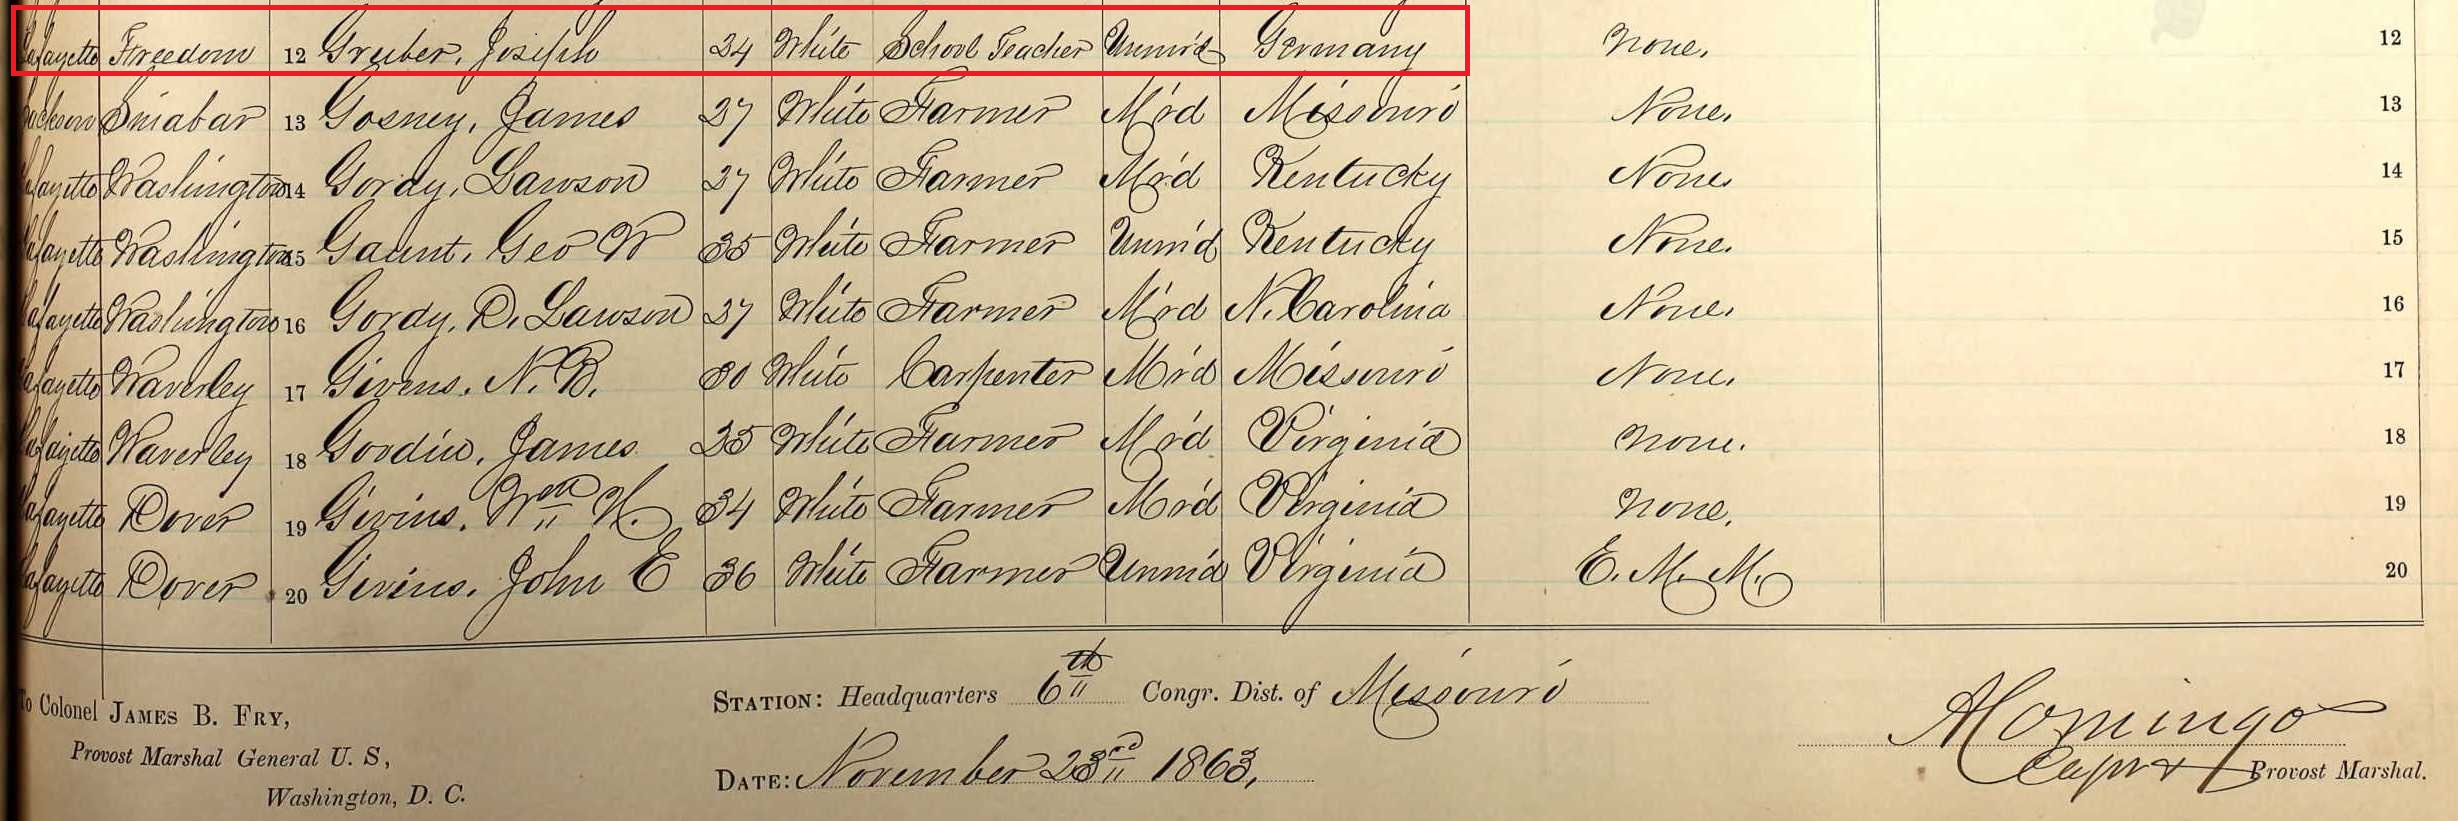 Lafayette Freedom 12 Gruber, Joseph 34 White School Teacher Unmr'd Germany None. 12
Jackson Sniabar 13 Gosney, James 37 White Farmer Mr'd Missouri None. 13
Lafayette Washington 14 Gordy, Lawson 37 White Farmer Mr'd Kentucky None. 14
Lafayette Washington 15 Gaunt, Geo W 35 White Farmer Unmr'd Kentucky None. 15
Lafayette Washington 16 Gordy, D. Lawson 37 White Farmer Mr'd N. Carolina None. 16
Lafayette Waverley 17 Givens, N. B. 30 White Carpenter Mr'd Missouri None. 17
Lafayette Waverley 18 Gordin, James 25 White Farmer Mr'd Virginia None. 18
Lafayette Dover 19 Givins, Wm H. 34 White Farmer Mr'd Virginia None. 19
Lafayette Dover 20 Givins, John E 36 White Farmer Unmr'd Virginia E. M. M. 20
To Colonel JAMES B. FRY,
Provost Marshal General U. S,
Washington, D. C.
STATION: Headquarters 6th Congr. Dist. of Missouri
DATE: November 23rd 1863,
Comingo
Capt &
Provost Marshal.